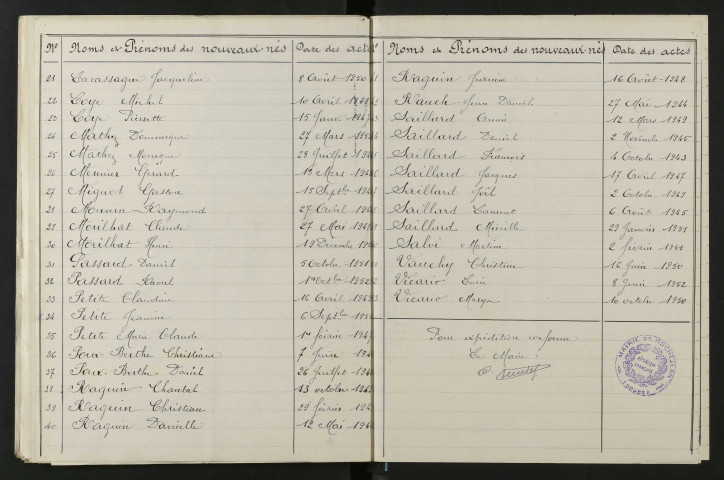 Nº Noms & Prénoms des nouveaux nés Date des actes
21 Cacassagne Jacqueline 8 Août 1950
22 Loye Michel 10 Avril
23 Loye Pierrette 15 Janv. 1947
24 Mathez Dominique 27 Mars
25 Mathez Monique 28 Juillet
26 Meunier Gérard 12 Mars
27 Mignot Gaston 15 Septbre
28 Monnin Raymond 27 Avril
29 Morilhat Claude 27 Mai
30 Morilhat Henri 19 Décembre
31 Passard Daniel 5 Octobre 1951
32 Passard Raoul 1er Octbre 1952
33 Petite Claudine 16 Avril
34 Petite Jeanine 6 Septbre
35 Petite Marie Claude 1er février 1947
36 Poux-Berthe Christiane 7 Juin
37 Poux-Berthe Daniel 26 Juillet
38 Raguin Chantal 13 octobre
39 Raguin Christian 29 février
40 Raguin Danielle 12 Mai
Noms & Prénoms des nouveaux nés Date des actes
Raguin Jeanine 16 Août 1948
Rauch Jean Daniel 27 Mai 1944
Saillard Annie 12 Mars 1949
Saillard Daniel 2 Novembre 1945
Saillard François 4 Octobre 1943
Saillard Jacques 17 Avril 1947
Saillard Joël 2 Octobre 1949
Saillard Laurent 6 Août 1945
Saillard Mireille 29 Janvier 1941
Salvi Martine 2 février 1951
Vauchy Christine 16 Juin 1950
Vicario 8 Juin 1952
Vicario 10 octobre 1950
Pour expédition conforme
Le Maire :
MAIRIE DE ROCHEJEAN
(DOUBS)